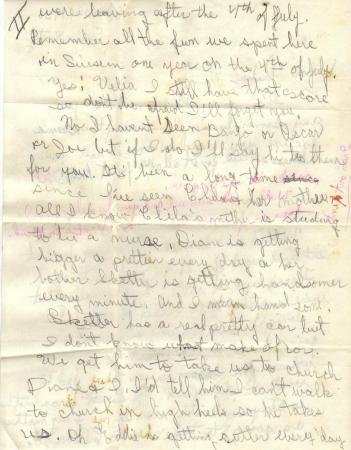 II
were leaving after the 4th of July.
Remember all the fun we spent here
in one year on the 4th of July.
Yes, Velia I still have that score
so don't be afraid I'll forget you.
No I havent seen or Oscar
or Joe but if I do I'll say hi to them
for you. It's been a long time since
since I've seen mother
all I know mother is studing
to be a nurse. Diane is getting
bigger a prettier every day a her
bother Sketter is getting handsomer
every minute. And I mean handsome.
Sketter has a real pretty car but
I don't know what make of car.
We get him to take us to church
Diane & I. I'd tell him I can't walk
to church in high heels so he takes
us. Oh Eddie is getting every day